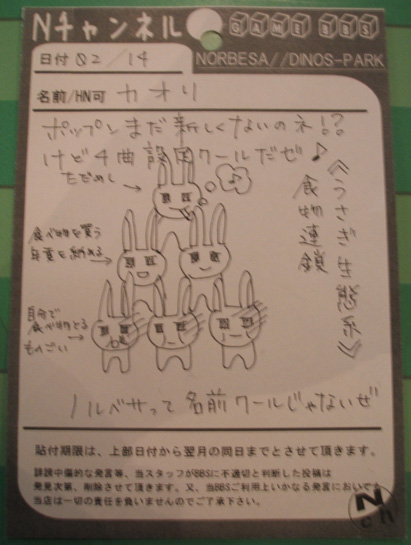 Nチャンネル
GAME BBS
日付 02 / 14
NORBESA//DINOS-PARK
名前/HN可 カオリ
ポップンまだ新しくないのネ!?
けど4曲設定クールだぜ♪
《うさぎ生態系》
食物連鎖
ただめし
食べ物を買う
年貢を納める
自分で
食べ物とる
ものごい
ノルベサって名前クールじゃないぜ
貼付期限は、上部日付から翌月の同日までとさせて頂きます。
誹謗中傷的な発言等、当スタッフがBBSに不適切と判断した投稿は
発見次第、削除させて頂きます。又、当BBSご利用上いかなる発言においても
当店は一切の責任を負いませんのでご了承下さい。
N
ch